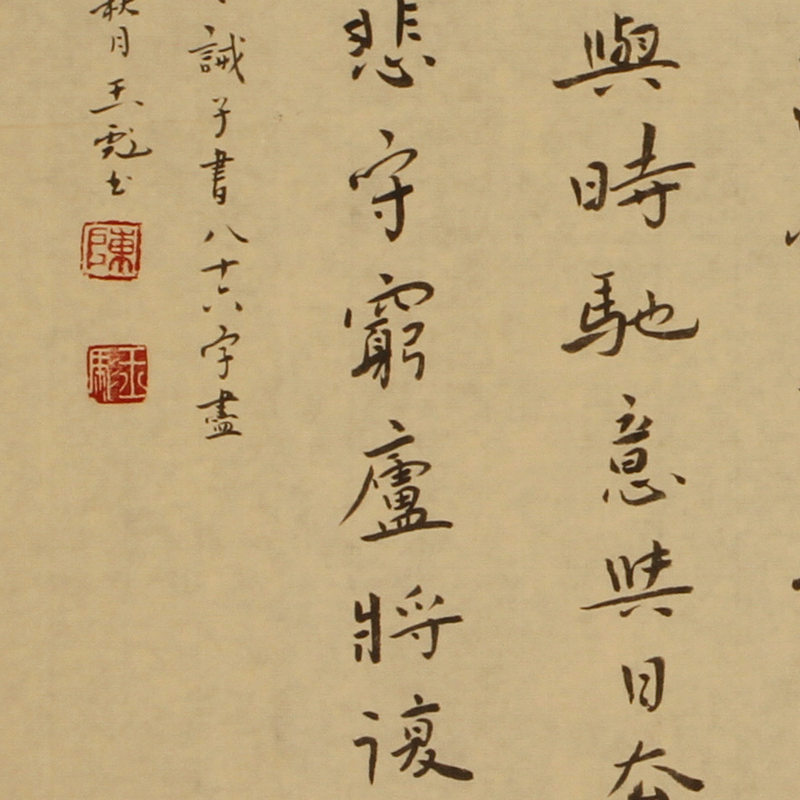 與時馳意與日去
悲守窮廬將復
誡子書八十六字盡
秋月玉彪书
陳